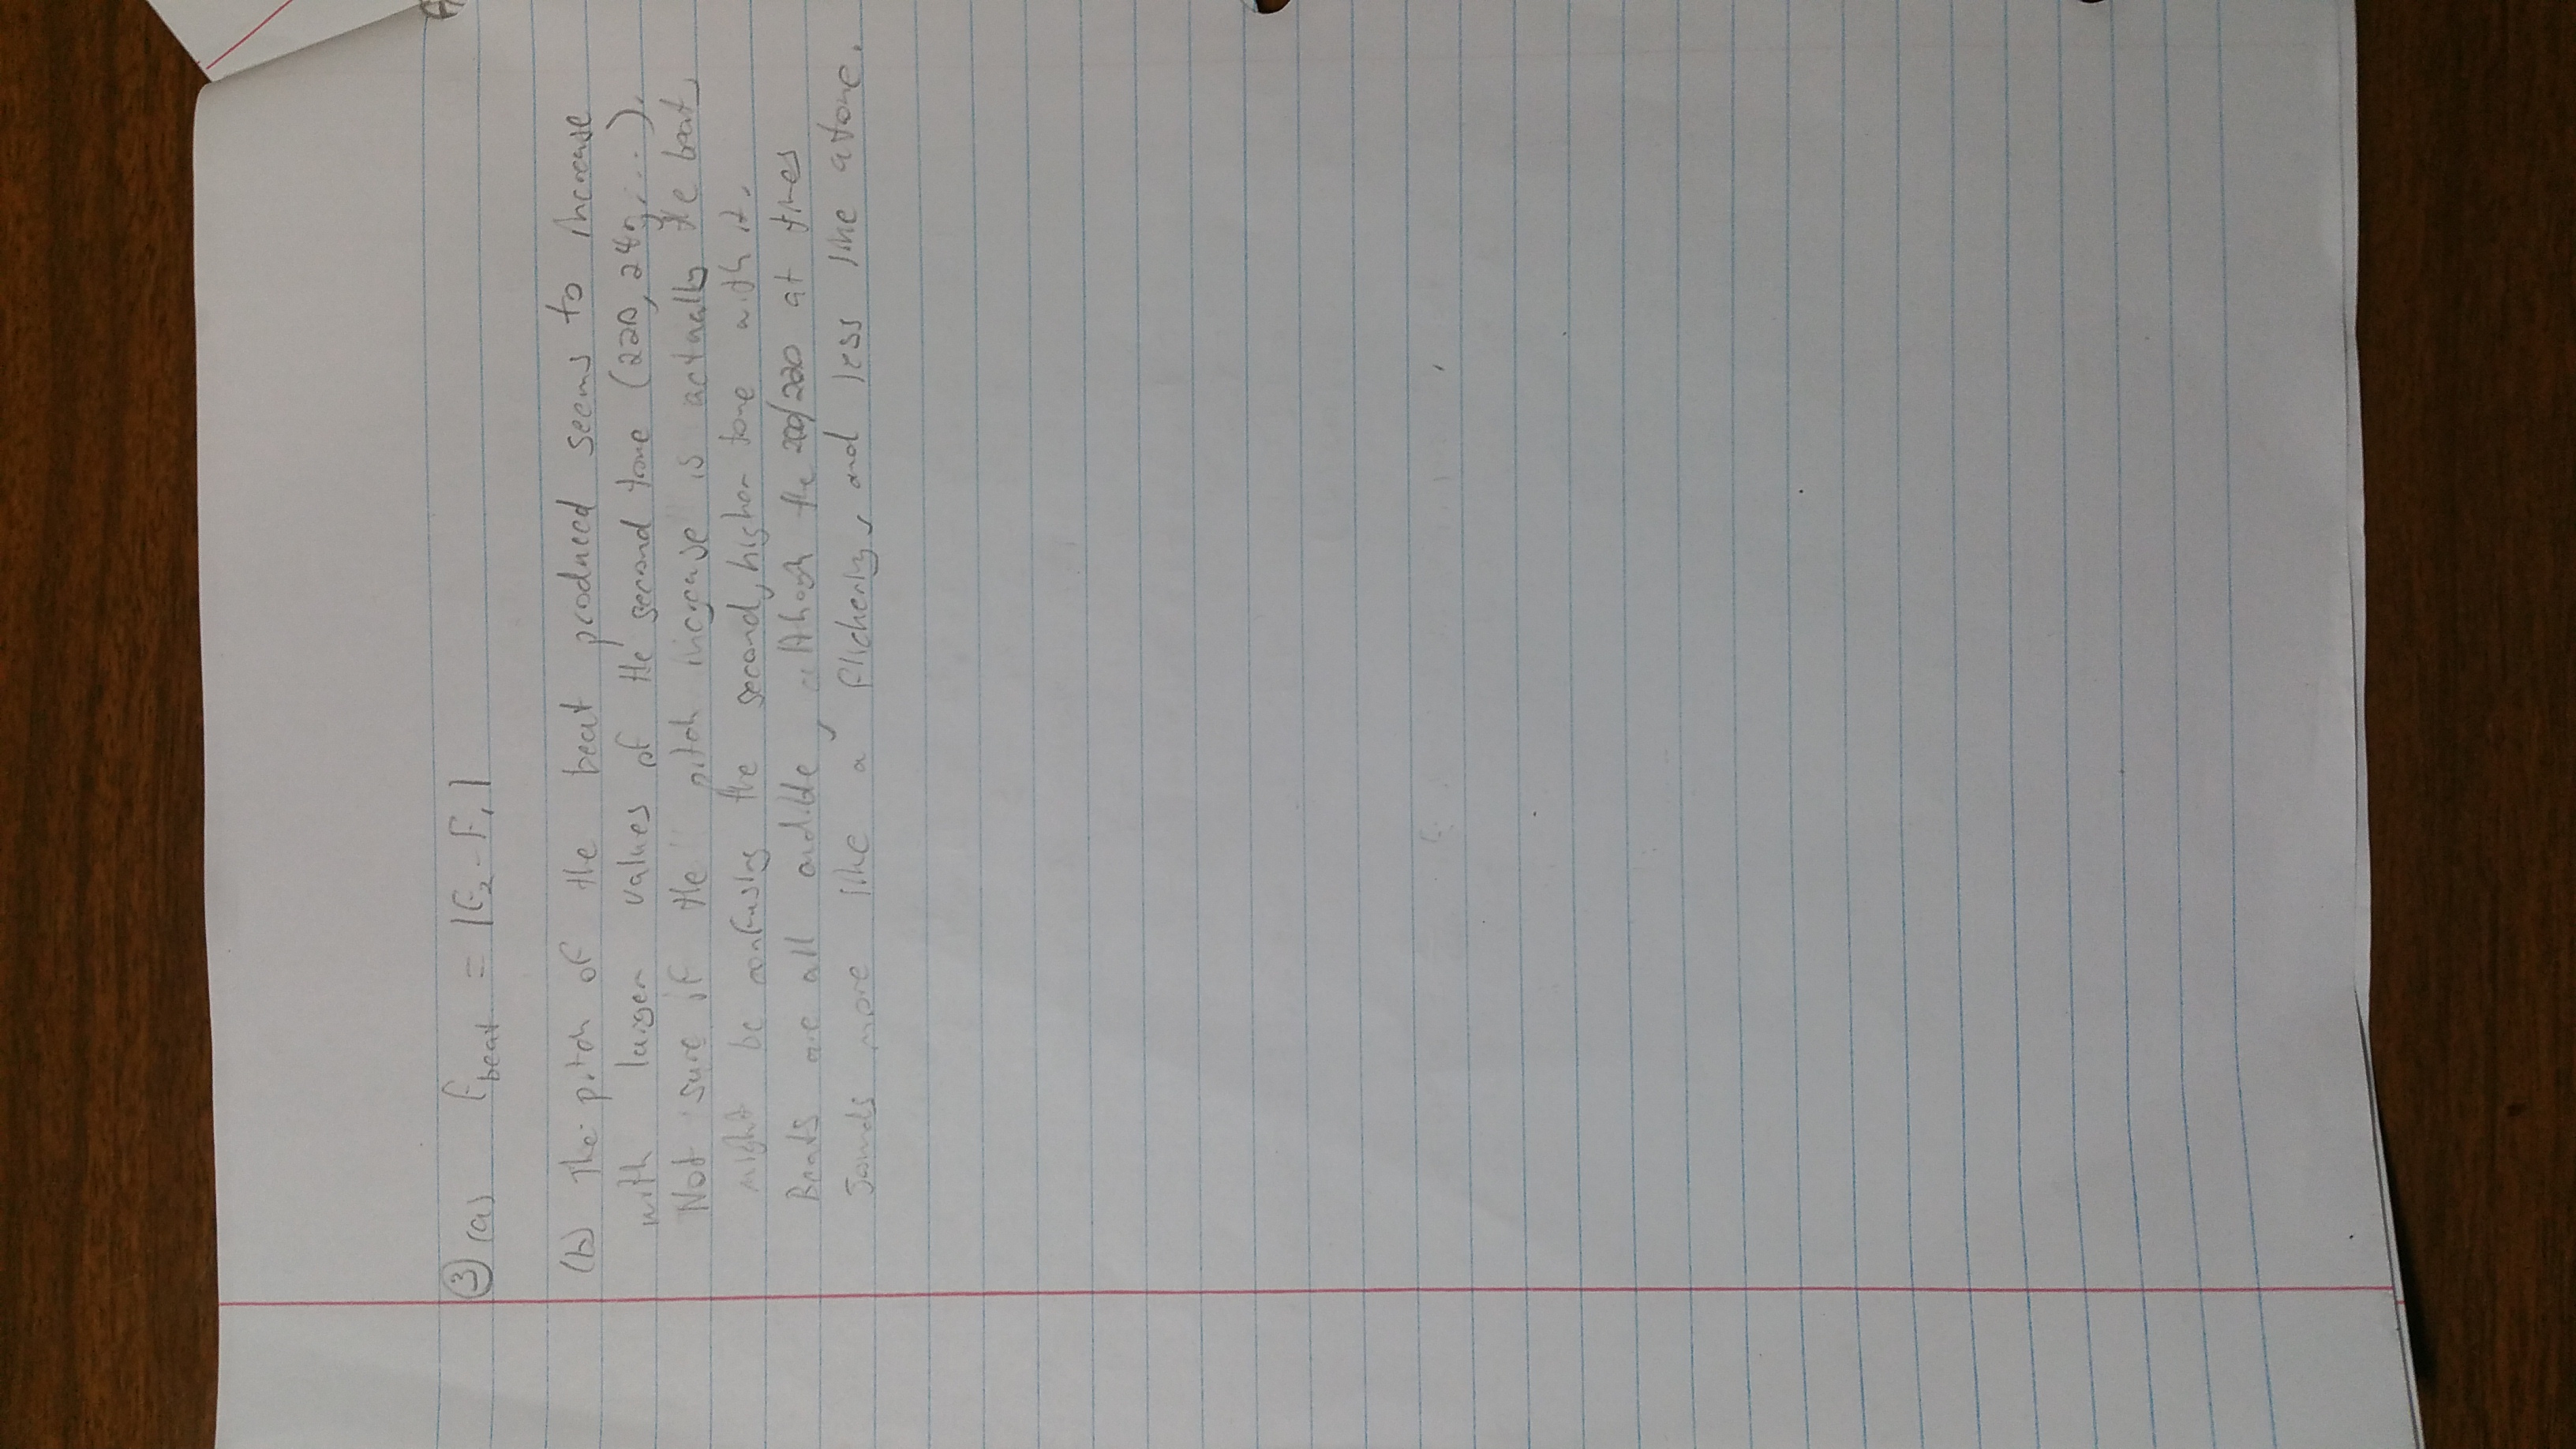 ③ (a) f_beat = |f₂ - f₁|
(b) The pitch of the beat produced seems to increase
with larger values of the second tone (220, 240, ...).
Not sure if the "pitch increase" is actually the beat,
might be confusing the second, higher tone with it.
Beats are all audible, although the 200/220 at times
sounds more like a flickering, and less like a tone.